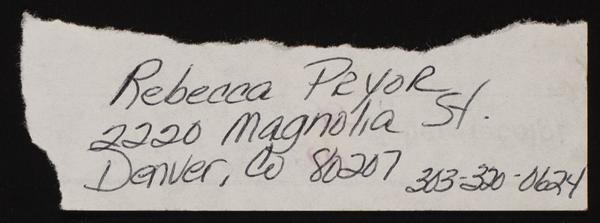 Rebecca Pryor
2220 Magnolia St.
Denver, Co 80207 303-320-0624